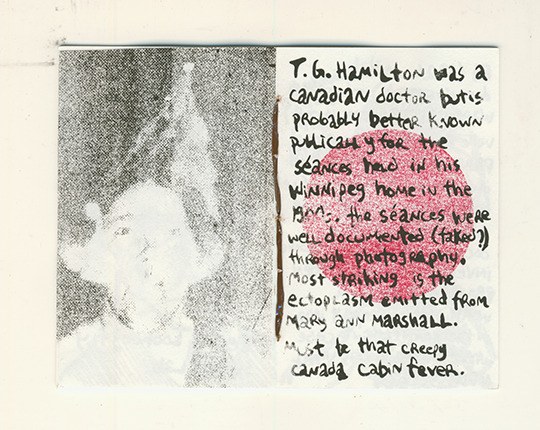 T. G. Hamilton was a
canadian doctor but is
probably better known
publically for the
séances held in his
winnipeg home in the
the séances were
well documented (faked?)
through photography.
most striking is the
ectoplasm emitted from
mary ann marshall.
must be that creepy
canada cabin fever.